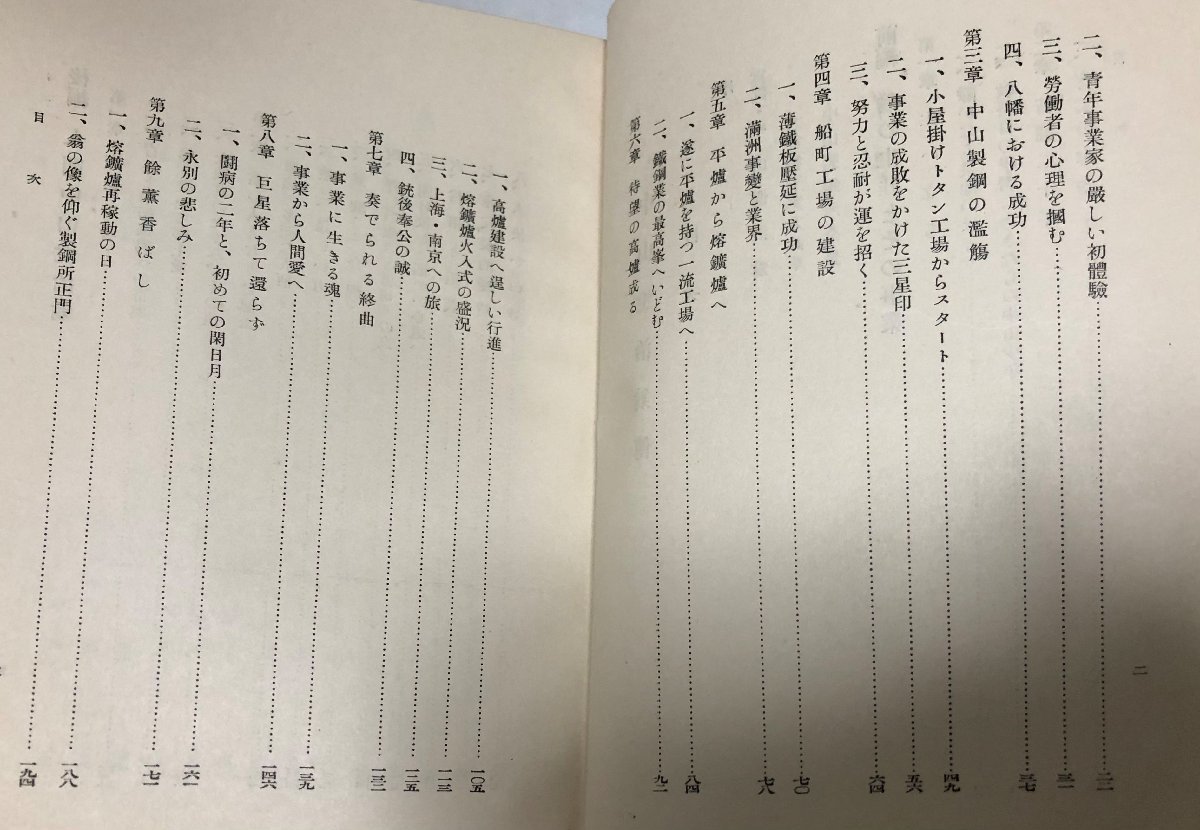 二、靑年事業家の厳しい初體驗……二二
三、勞働者の心理を摑む……三一
四、八幡における成功……三七
第三章 中山製鋼の濫觴
一、小屋掛けトタン工場からスタート……四九
二、事業の成敗をかけた三星印……五六
三、努力と忍耐が運を招く……六四
第四章 船町工場の建設
一、薄鐵板壓延に成功……七〇
二、滿洲事變と業界……七六
第五章 平爐から熔鑛爐へ
一、遂に平爐を持つ一流工場へ……八四
二、鐵鋼業の最高峯へいどむ……九二
第六章 待望の高爐成る
二
一、高爐建設へ逞しい行進……一〇五
二、熔鑛爐火入式の盛況……一一三
三、上海・南京への旅……一二五
四、銃後奉公の誠……一三二
第七章 奏でられる終曲
一、事業に生きる魂……一三九
二、事業から人間愛へ……一四六
第八章 巨星落ちて還らず
一、闘病の二年と、初めての閑日月……一六一
二、永別の悲しみ……一七一
第九章 餘薰香ばし
一、熔鑛爐再稼動の日……一八八
二、翁の像を仰ぐ製鋼所正門……一九四
目次